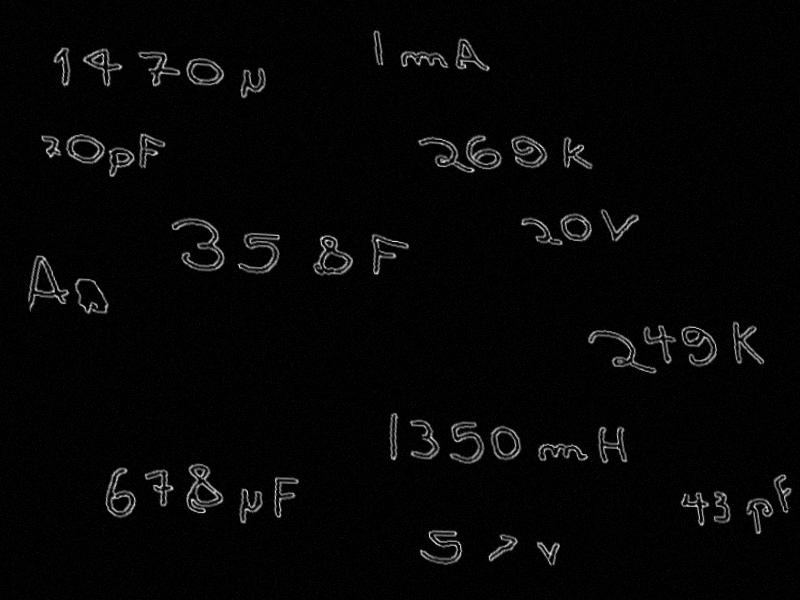 1470μ
1mA
20pF
269k
358F
20V
249K
1350mH
678μF
43pF